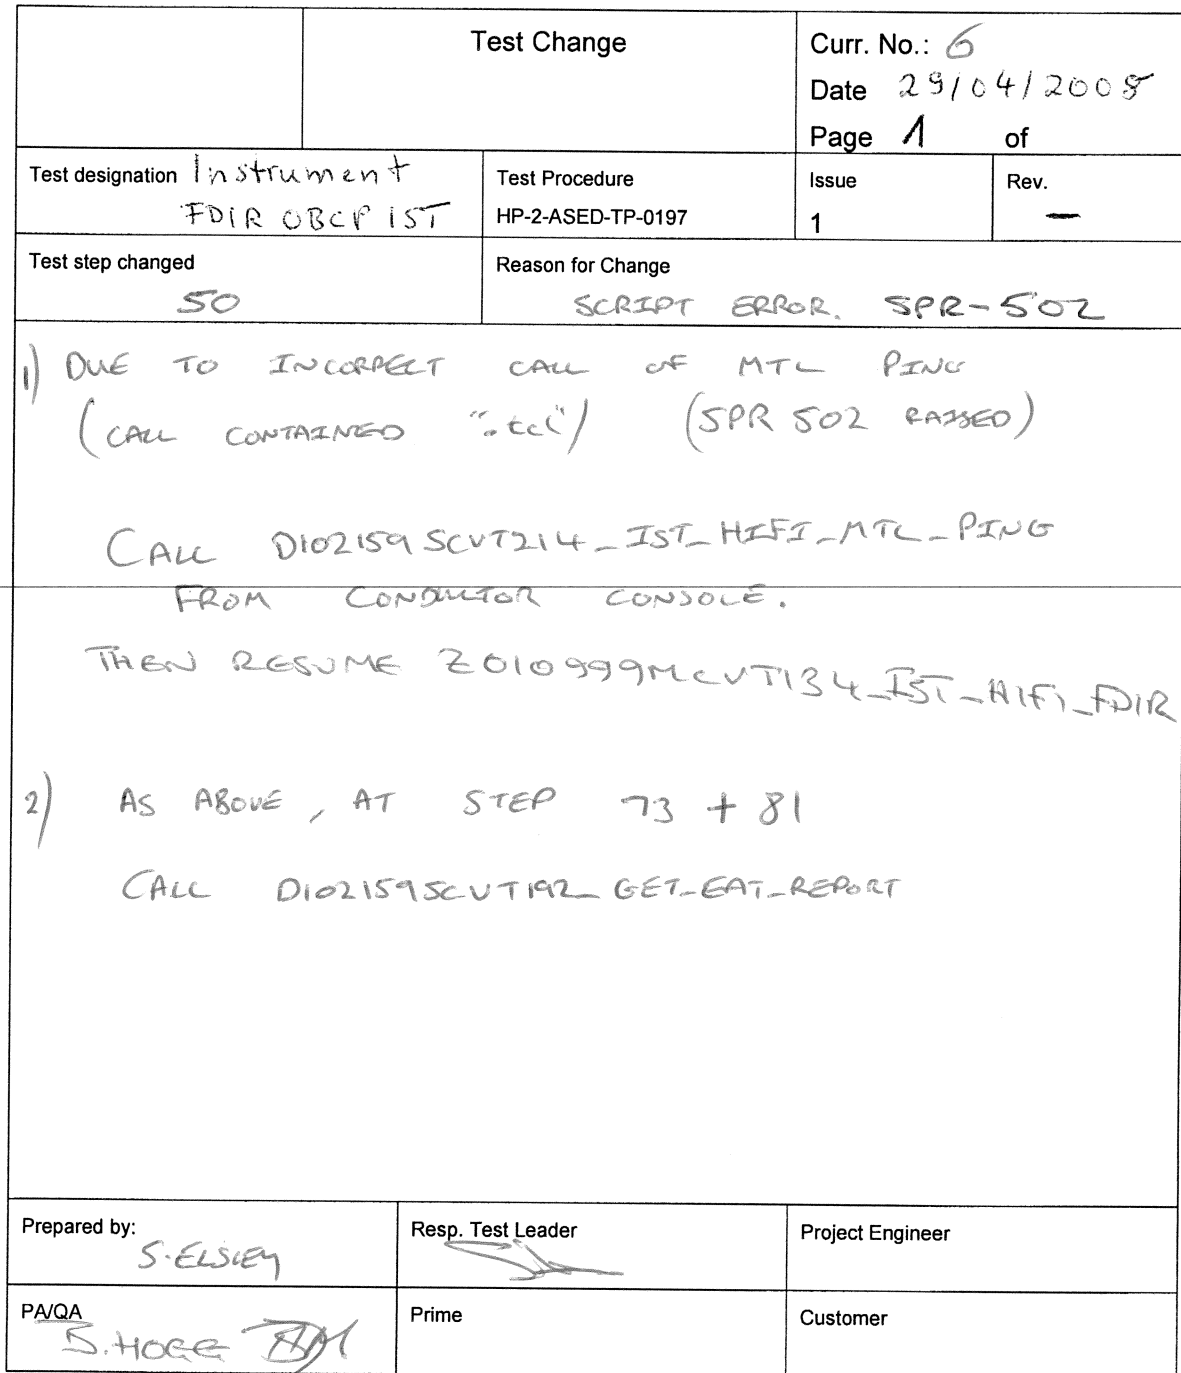 Test Change
Curr. No.: 6
Date 29/04/2008
Page 1 of
Test designation Instrument
FDIR OBCP IST
Test Procedure
HP-2-ASED-TP-0197
Issue
1
Rev.
—
Test step changed
50
Reason for Change
SCRIPT ERROR. SPR-502
1) DUE TO INCORRECT CALL OF MTL PING
(CALL CONTAINED ".tcl") (SPR 502 RAISED)
CALL D102159SCVT214_IST_HIFI_MTL_PING
FROM CONDUCTOR CONSOLE.
THEN RESUME Z010999MCVT134_IST_HIFI_FDIR
2) AS ABOVE, AT STEP 73 + 81
CALL D102159SCVT192_GET_EAT_REPORT
Prepared by:
S. ELSLEY
Resp. Test Leader
Project Engineer
PA/QA
B. HOGG
Prime
Customer